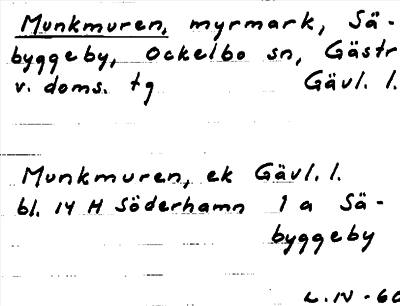 Munkmuren, myrmark, Sä-
byggeby, Ockelbo sn, Gästr
v. doms. tg Gävl. l.
Munkmuren, ek Gävl. l.
bl. 14 H Söderhamn 1 a Sä-
byggeby
L. IV. 60